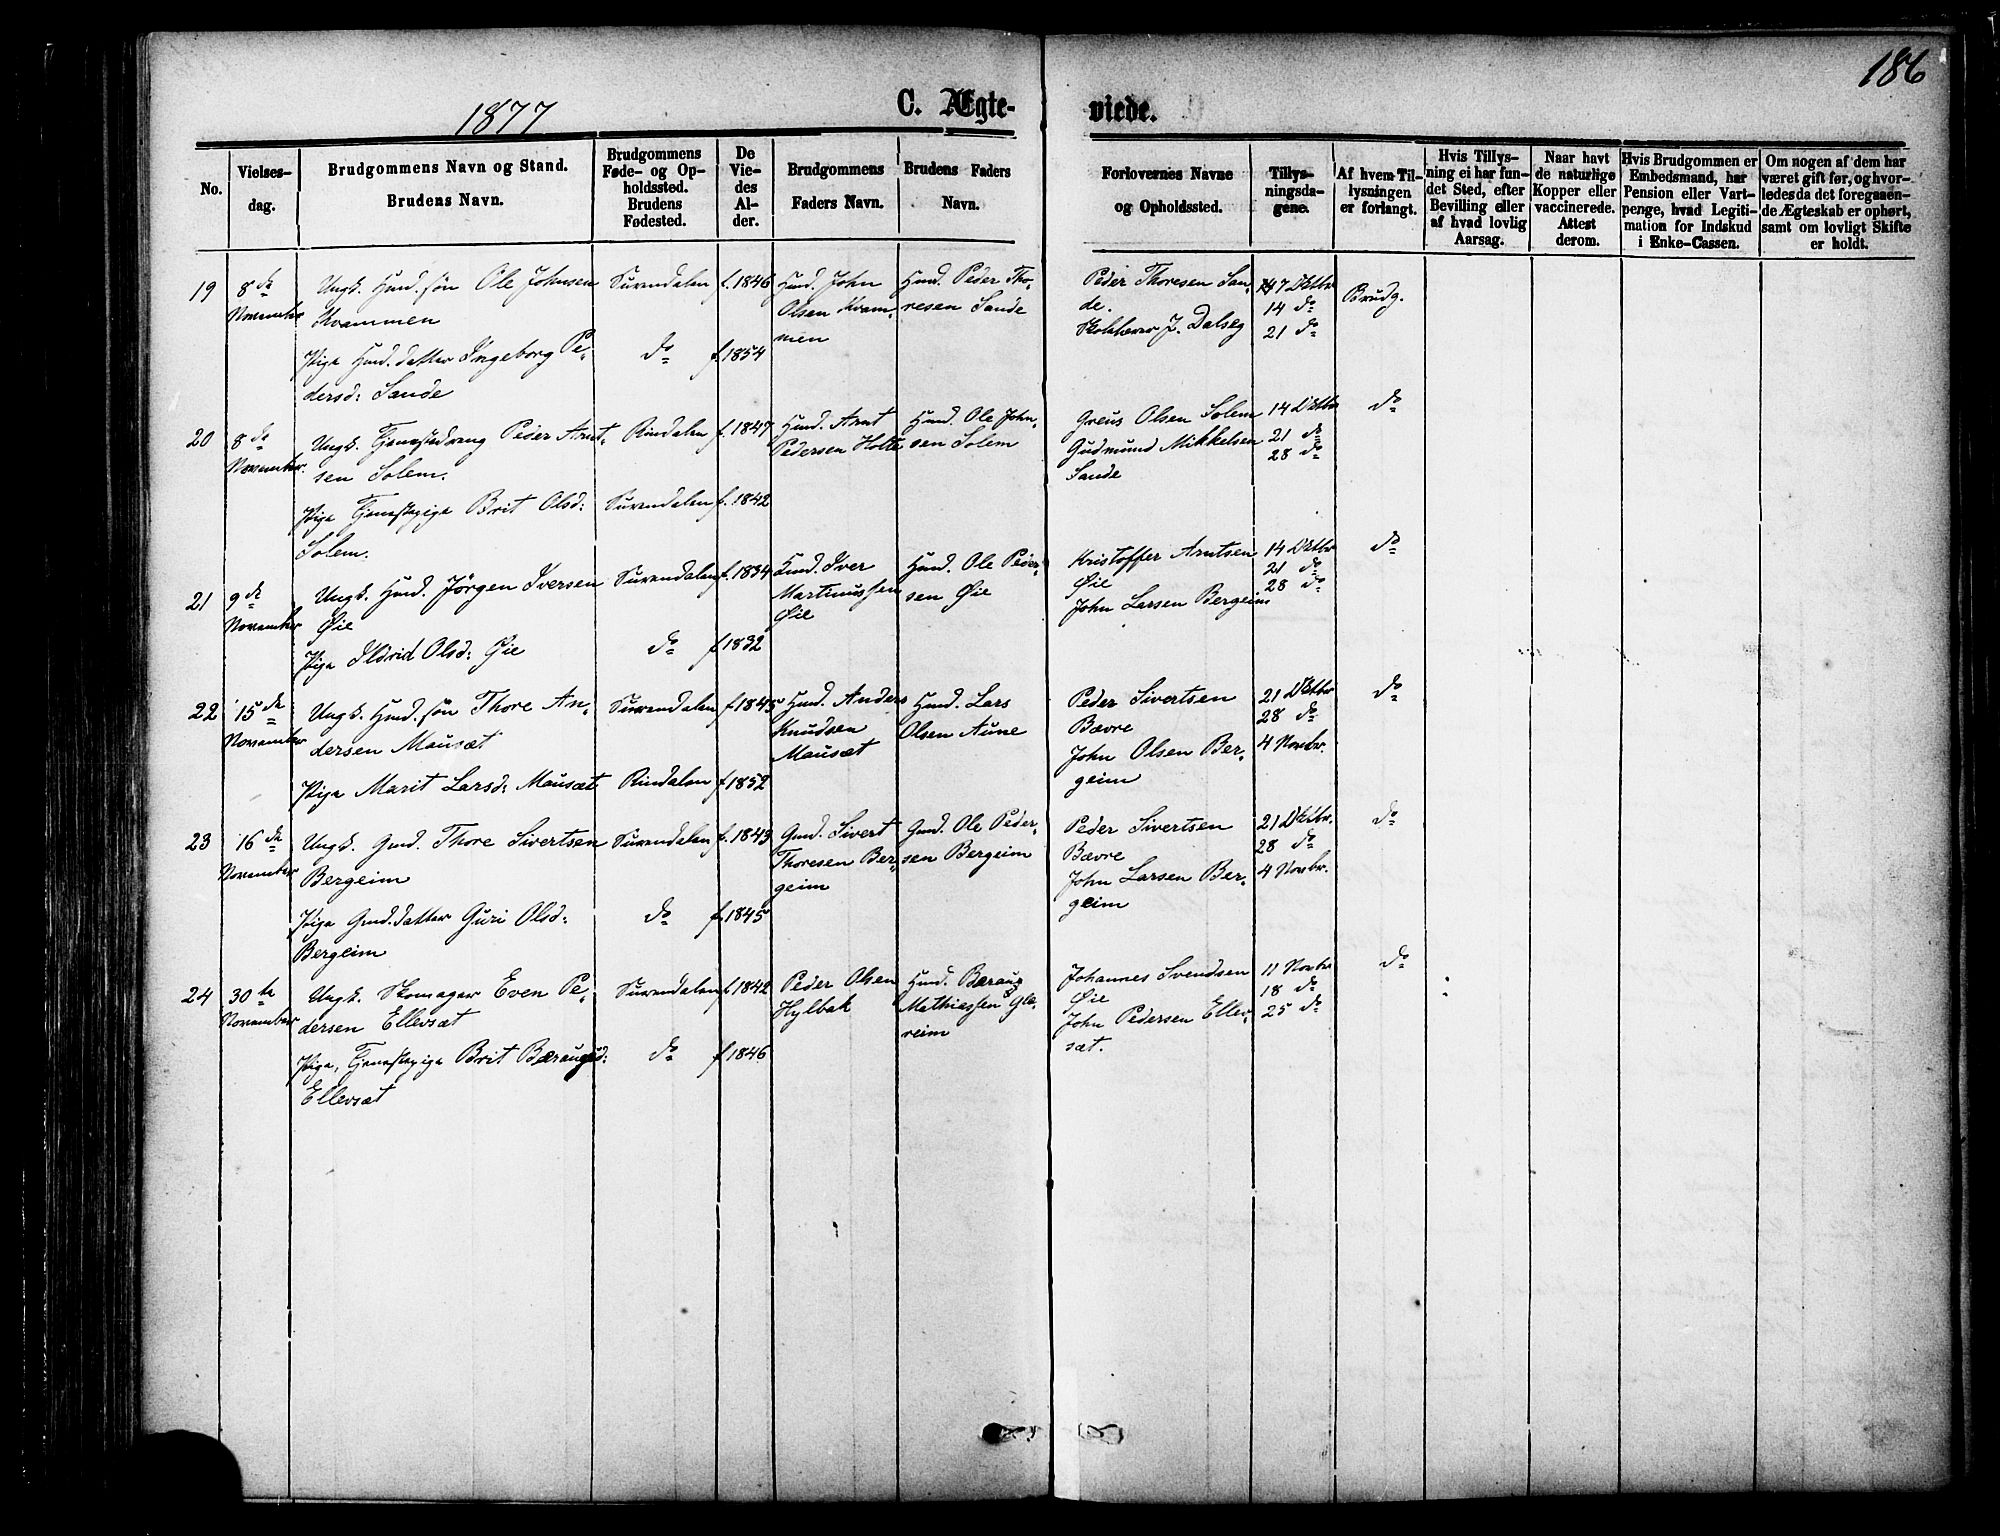 186
1877
C. Ægte-
viede.
No.
Vielses-
dag.
Brudgommens Navn og Stand.
Brudens Navn.
Brudgommens
Føde- og Op-
holdssted.
Brudens
Fødested.
De
Vie-
des
Al-
der.
Brudgommens
Faders Navn.
Brudens Faders
Navn.
Forlovernes Navne
og Opholdssted.
Tillys-
ningsda-
gene.
Af hvem Til-
lysningen
er forlangt.
Hvis Tillys-
ning ei har fun-
det Sted, efter
Bevilling eller
af hvad lovlig
Aarsag.
Naar havt
de naturlige
Kopper eller
vaccinerede.
Attest
derom.
Hvis Brudgommen er
Embedsmand, har
Pension eller Vart-
penge, hvad Legiti-
mation for Indskud
i Enke-Cassen.
Om nogen af dem har
været gift før, og hvor-
ledes da det foregaaen-
de Ægteskab er ophørt,
samt om lovligt Skifte
er holdt.
19
8de
November
Ungk. Huud. søn Ole Johnsen
Kvammen
Pige Huud. datter Ingeborg Pe-
dersd: Sande
Surendalen
do
f. 1846
f. 1854
Huud. John
Olsen Kvam-
men
Huud. Peder Tho-
resen Sande
Peder Thoresen San-
de.
J. Dalseg
7 Oktbr
14 do
21 do
Brudg.
20
8de
November.
Ungk. Tjenestedreng Peder Arnt-
sen Solem.
Pige Tjenestepige Brit Olsd:
Solem.
Rindalen
Surendalen
f. 1847
f. 1842
Huud. Arnt
Pedersen Holte
Huud. Ole John-
sen Solem
Greus Olsen Solem
Gudmund Mikkelsen
Sande
14 Oktbr
21 do
28 do
do
21
9de
November
Ungk. Huud. Jörgen Iversen
Øie
Pige Ildrid Olsd: Øie
Surendalen
do
f. 1834
f. 1832
Huud. Iver
Martinussen
Øie
Huud. Ole Peder-
sen Øie
Kristoffer Arntsen
Øie
John Larsen Bergeim
14 Oktbr
21 do
28 do
do
22
15de
November
Ungk. Huud. søn Thore An-
dersen Mausæt
Pige Marit Larsd: Mausæt
Surendalen
Rindalen
f. 1845
f. 1852
Huud. Anders
Knudsen
Mausæt
Huud. Lars
Olsen Aune
Peder Sivertsen
Bævre
John Olsen Ber-
geim
21 Oktbr
28 do
4 Novbr.
do
23
16de
November
Ungk. Gmd. Thore Sivertsen
Bergeim
Pige Gmd. datter Guri Olsd:
Bergeim
Surendalen
do
f. 1843
f. 1845
Gmd. Sivert
Thoresen Ber-
geim
Gmd. Ole Peder-
sen Bergeim
Peder Sivertsen
Bævre
John Larsen Ber-
geim
21 Oktbr.
28 do
4 Novbr.
do
24
30te
November
Ungk. Skomager Even Pe-
dersen Ellevsæt
Pige, Tjenestepige Brit Bæraugsd:
Ellevsæt
Surendalen
do
f. 1842
f. 1846
Peder Olsen
Hylbak
Huud. Bæraug
Mathiessen Glæ-
reim
Johannes Svendsen
Øie
John Pedersen Ellev-
sæt.
11 Novbr
18 do
25 do
do